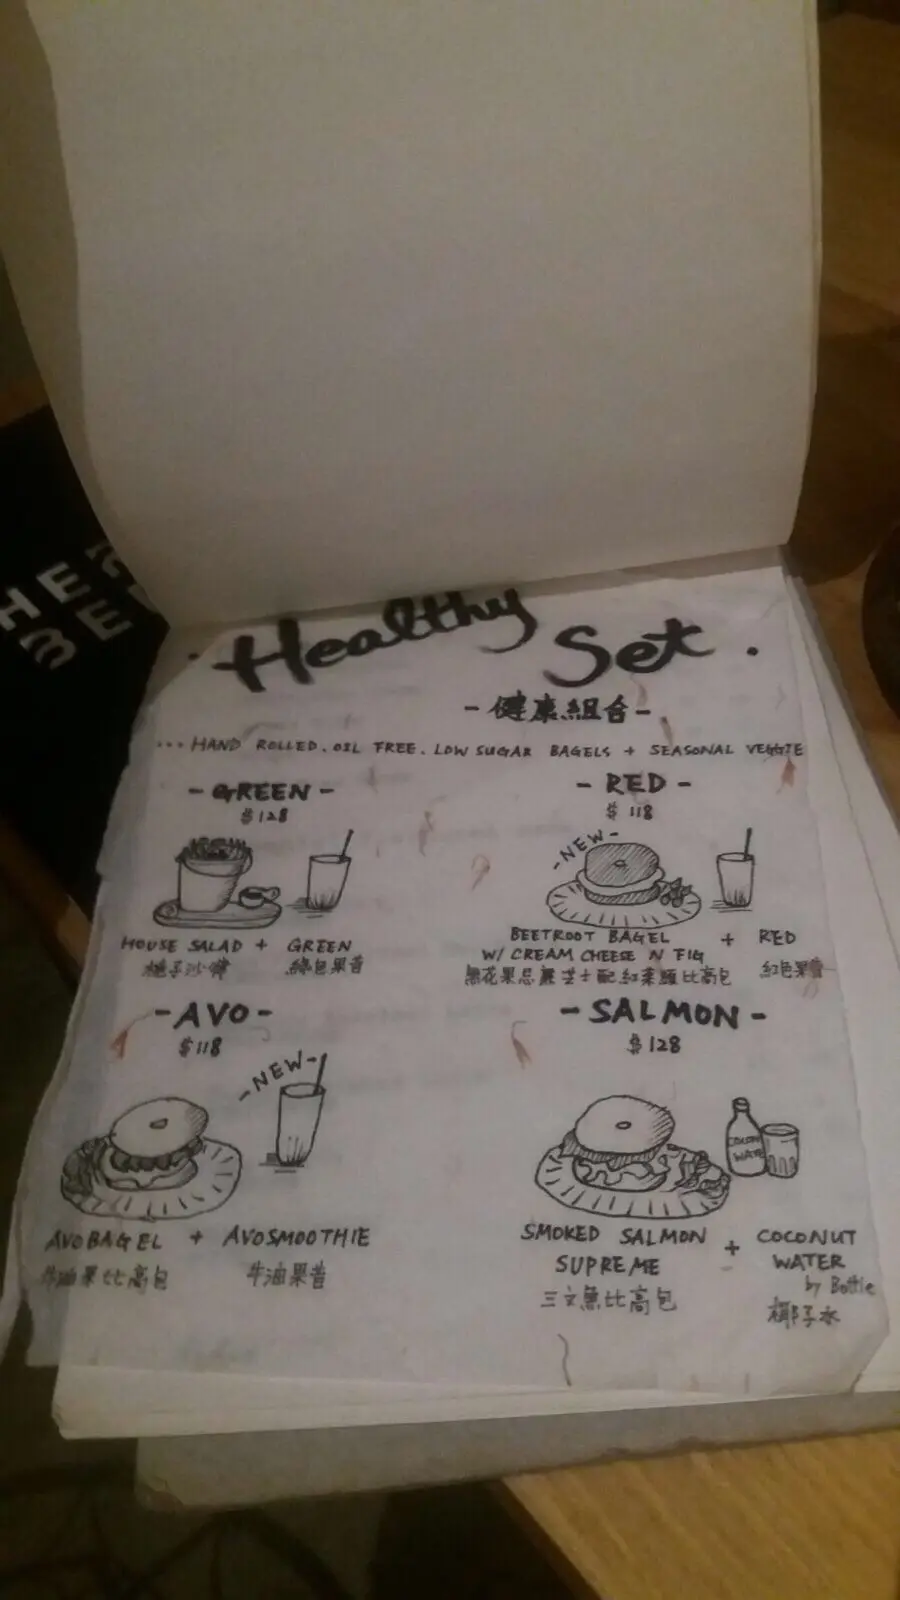 · Healthy Set ·
- 健康組合 -
... HAND ROLLED. OIL FREE. LOW SUGAR BAGELS + SEASONAL VEGGIE
- GREEN -
$128
HOUSE SALAD + GREEN
沙律 綠色果昔
- RED -
$ 118
- NEW -
BEETROOT BAGEL + RED
W/ CREAM CHEESE N FIG
無花果忌廉芝士配紅菜頭比高包 紅色果昔
- AVO -
$118
- NEW -
AVOBAGEL + AVOSMOOTHIE
牛油果比高包 牛油果昔
- SALMON -
$128
COCONUT
WATER
SMOKED SALMON + COCONUT
SUPREME WATER
by Bottle
三文魚比高包 椰子水